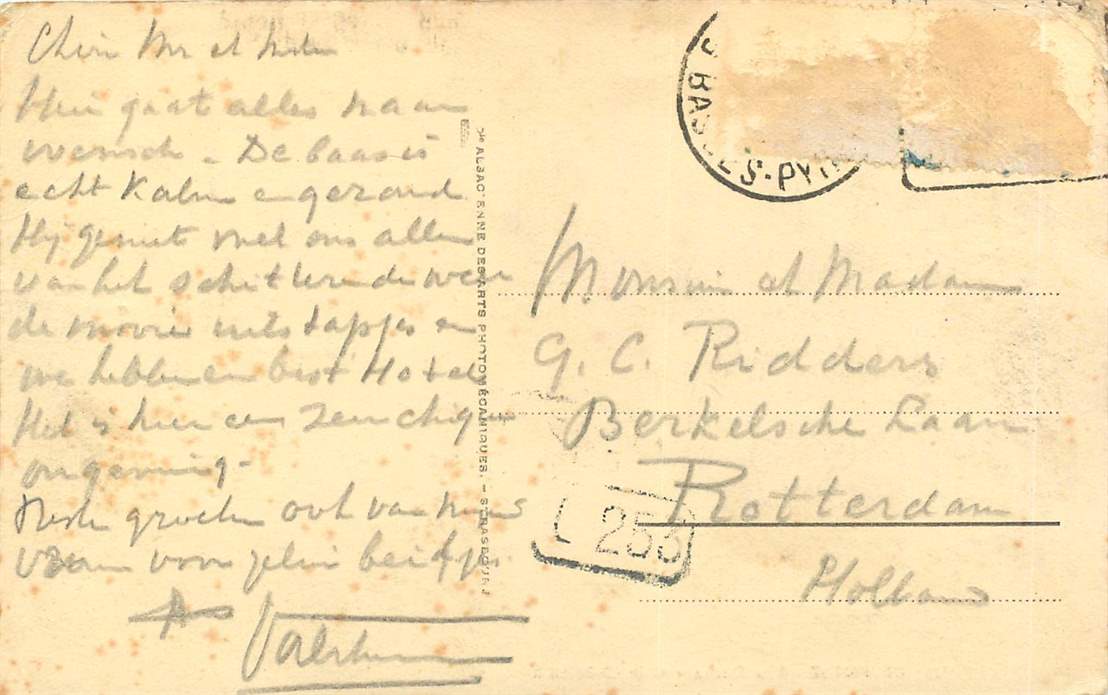 Hier gaat alles naar
wensch. De baas is
echt kalm en gezond
Hij geniet met ons allen
van het schitterende weer
de mooie uitstapjes en
we hebben een best Hotel
Het is hier een
omgeving.
groeten ook van mijn
voor jelui beidjes
BASSES-PYR
Cie ALSACIENNE DES ARTS PHOTOMÉCANIQUES. - STRASBOURG
Monsieur et Madame
G. C. Ridders
Berkelsche Laan
Rotterdam
Holland
253